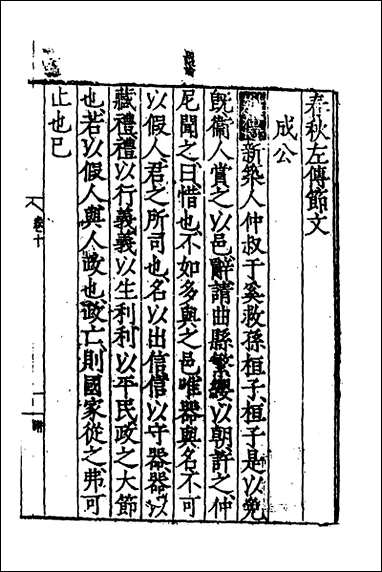 春秋左傳節文
成公
新築人仲叔于奚救孫桓子桓子是以免
既衛人賞之以邑辭請曲縣繁纓以朝許之仲
尼聞之曰惜也不如多與之邑唯器與名不可
以假人君之所司也名以出信信以守器器以
藏禮禮以行義義以生利利以平民政之大節
也若以假人與人政也政亡則國家從之弗可
止也已
卷十
一